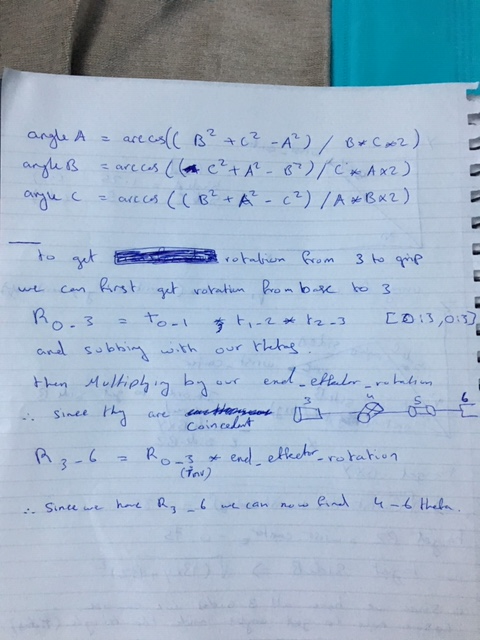 angle A = arccos(( B² + C² - A²) / B * C * 2)
angle B = arccos (( C² + A² - B²) / C * A * 2)
angle C = arccos (( B² + A² - C²) / A * B * 2)
To get rotation from 3 to grip
we can first get rotation from base to 3
R0-3 = t0-1 * t1-2 * t2-3 [0:3, 0:3]
and subbing with our thetas.
then Multiplying by our end_effector_rotation
∴ since they are coincedent 3 4 5 6
R3-6 = R0-3 (inv) * end_effector_rotation
∴ Since we have R3-6 we can now find 4-6 theta.